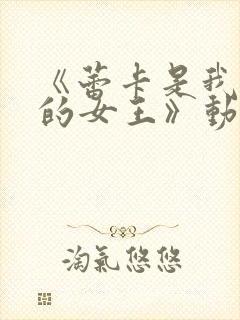 《蕾卡是我
的女王》動
淘氣悠悠